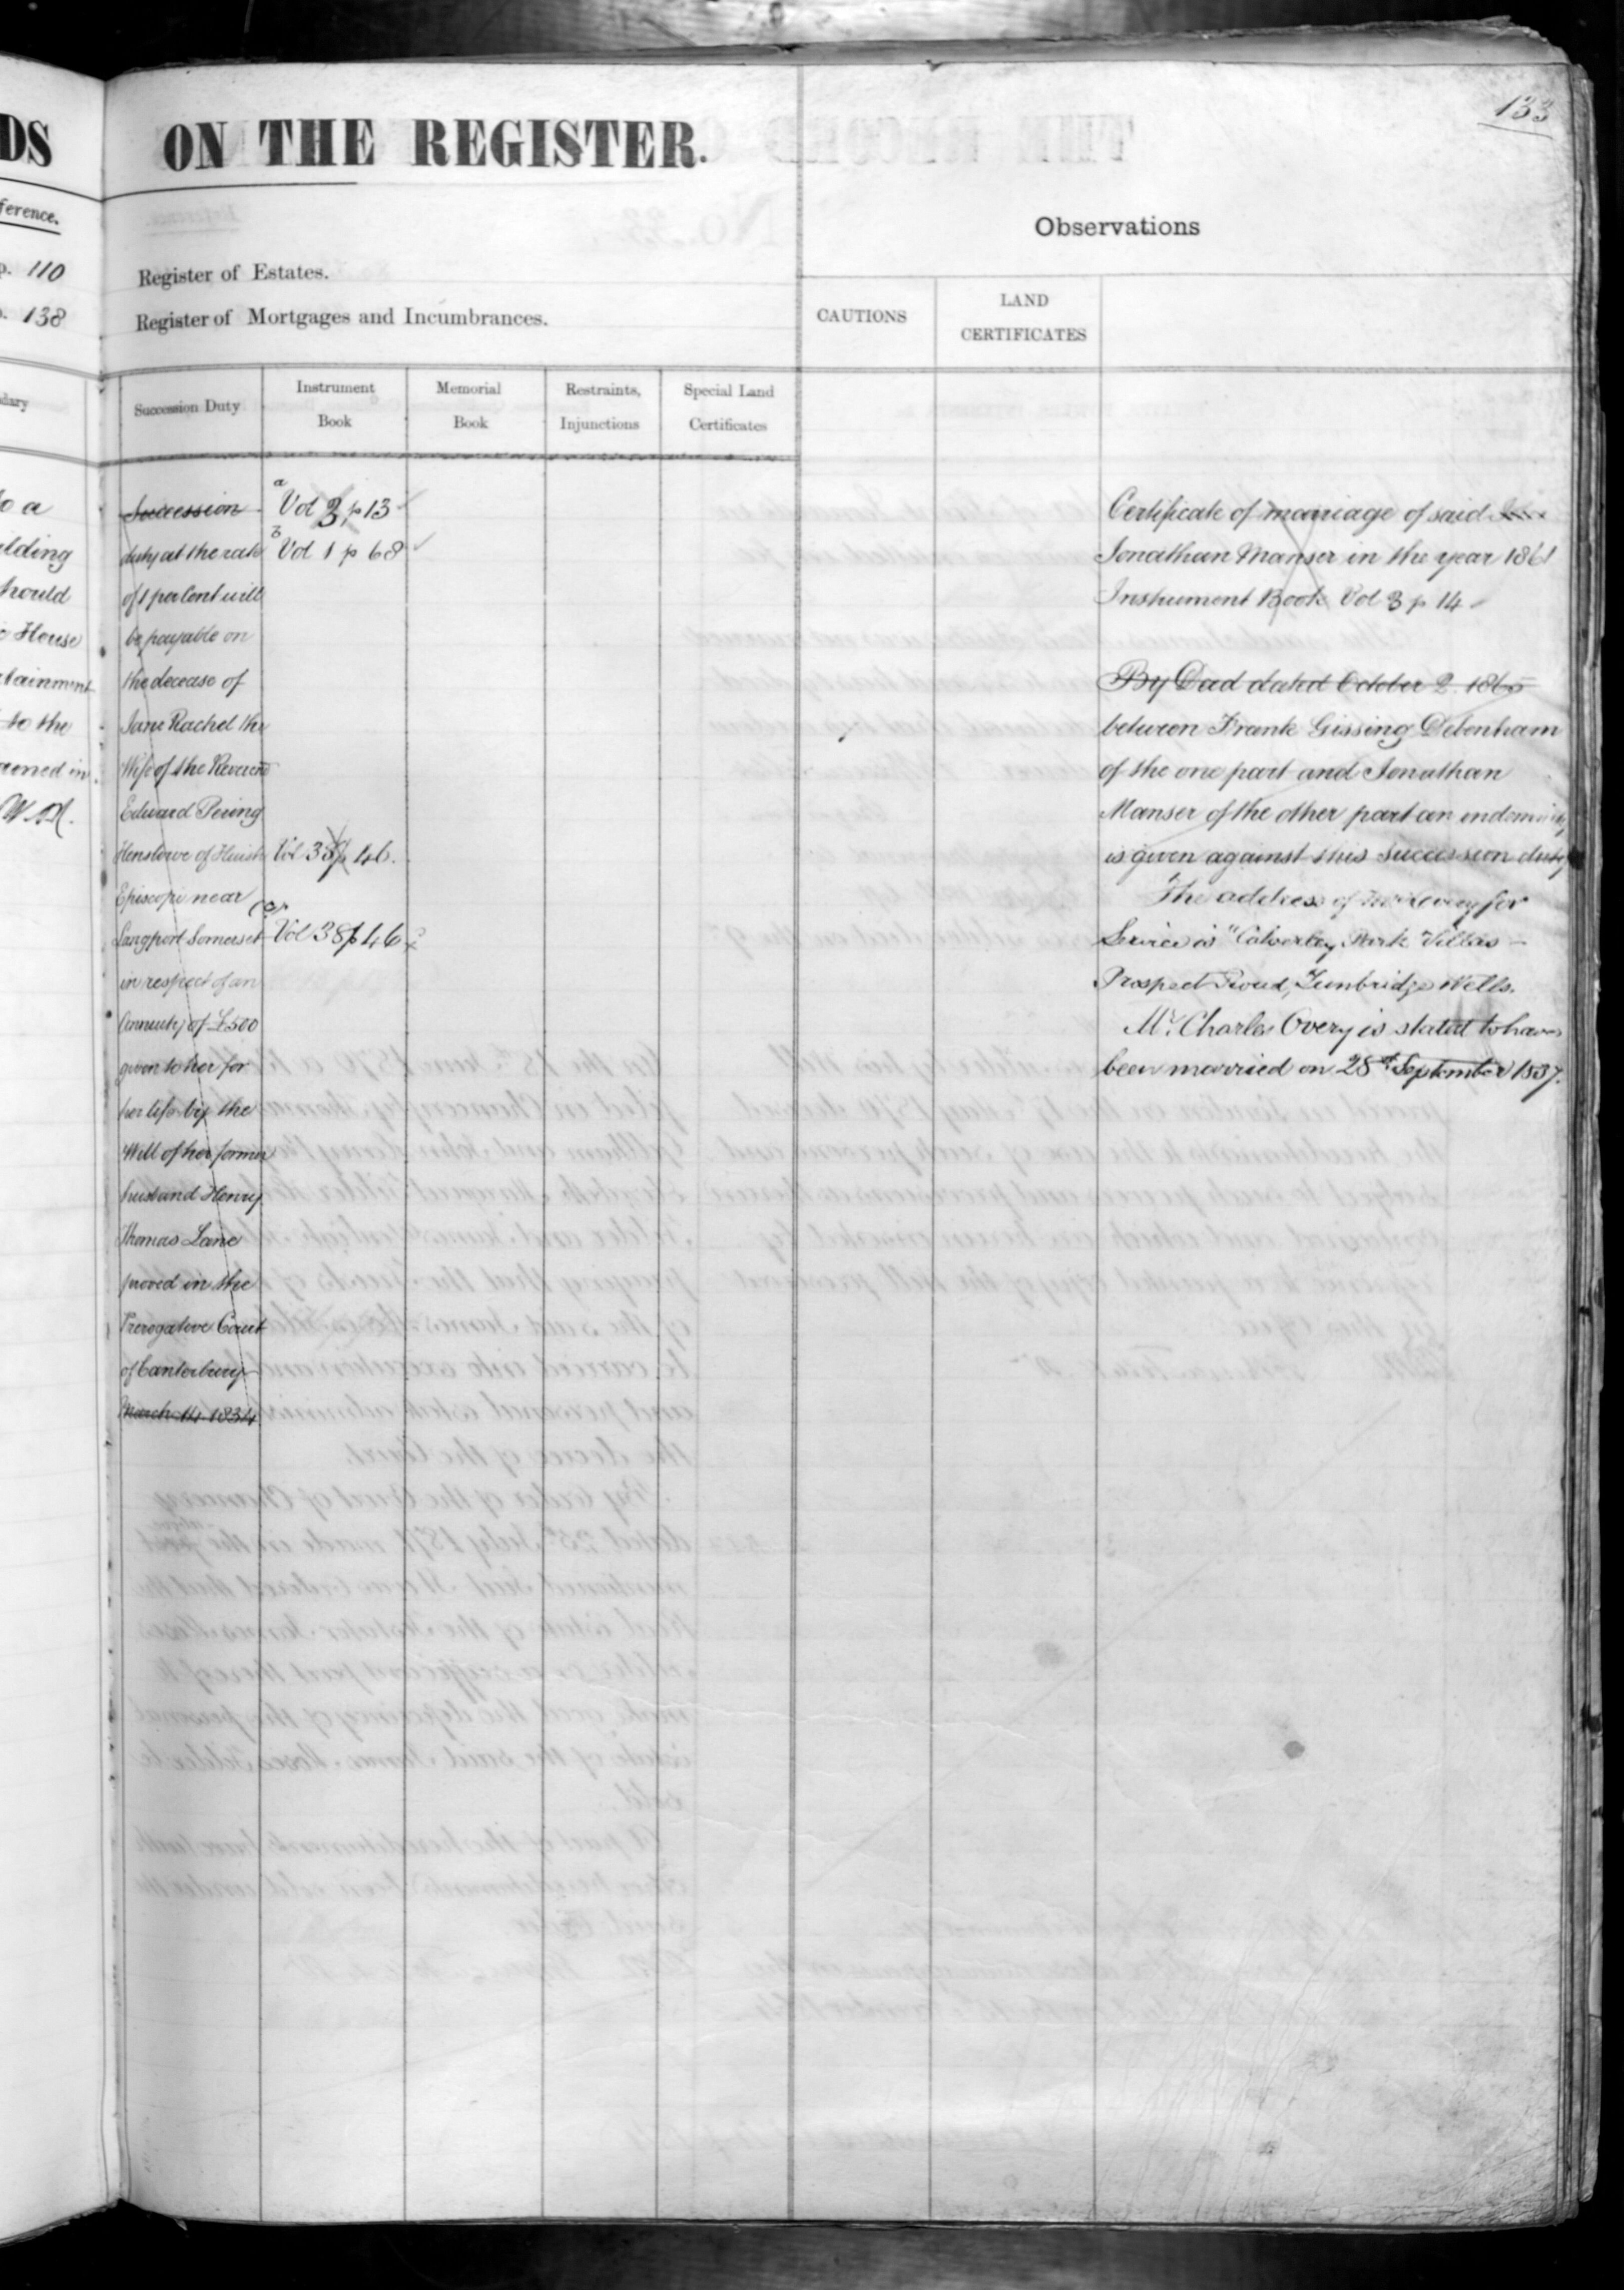 DS
ference.
p. 110
138
dary
to a
lding
hould
House
tainment
to the
ened in
W.
133
ON THE REGISTER.
Register of Estates.
Register of Mortgages and Incumbrances.
Observations
CAUTIONS
LAND
CERTIFICATES
Succession Duty
Instrument
Book
Memorial
Book
Restraints,
Injunctions
Special Land
Certificates
Succession
duty at the rate
of 1 per Cent will
be payable on
the decease of
Jane Rachel the
Wife of the Reverend
Edward Pering
Henslowe of Huish
Episcopi near
Langport Somerset
in respect of an
Annuity of £500
given to her for
her life by the
Will of her former
husband Henry
Thomas Lane
proved in the
Prerogative Court
of Canterbury
March 14 1834
a
Vol 3 p 13
b
Vol 1 p 68
Vol 38 p 46.
(c)
Vol 38 p 46
Certificate of marriage of said
Jonathan Manser in the year 1861
Instrument Book Vol 3 p 14
By Deed dated October 2 1865
between Frank Gissing Debenham
of the one part and Jonathan
Manser of the other part an indemnity
is given against this succession duty
The address of Mr Overy for
Service is "Calverley Park Villas -
Prospect Road, Tunbridge Wells.
Mr. Charles Overy is stated to have
been married on 28th September 1837.